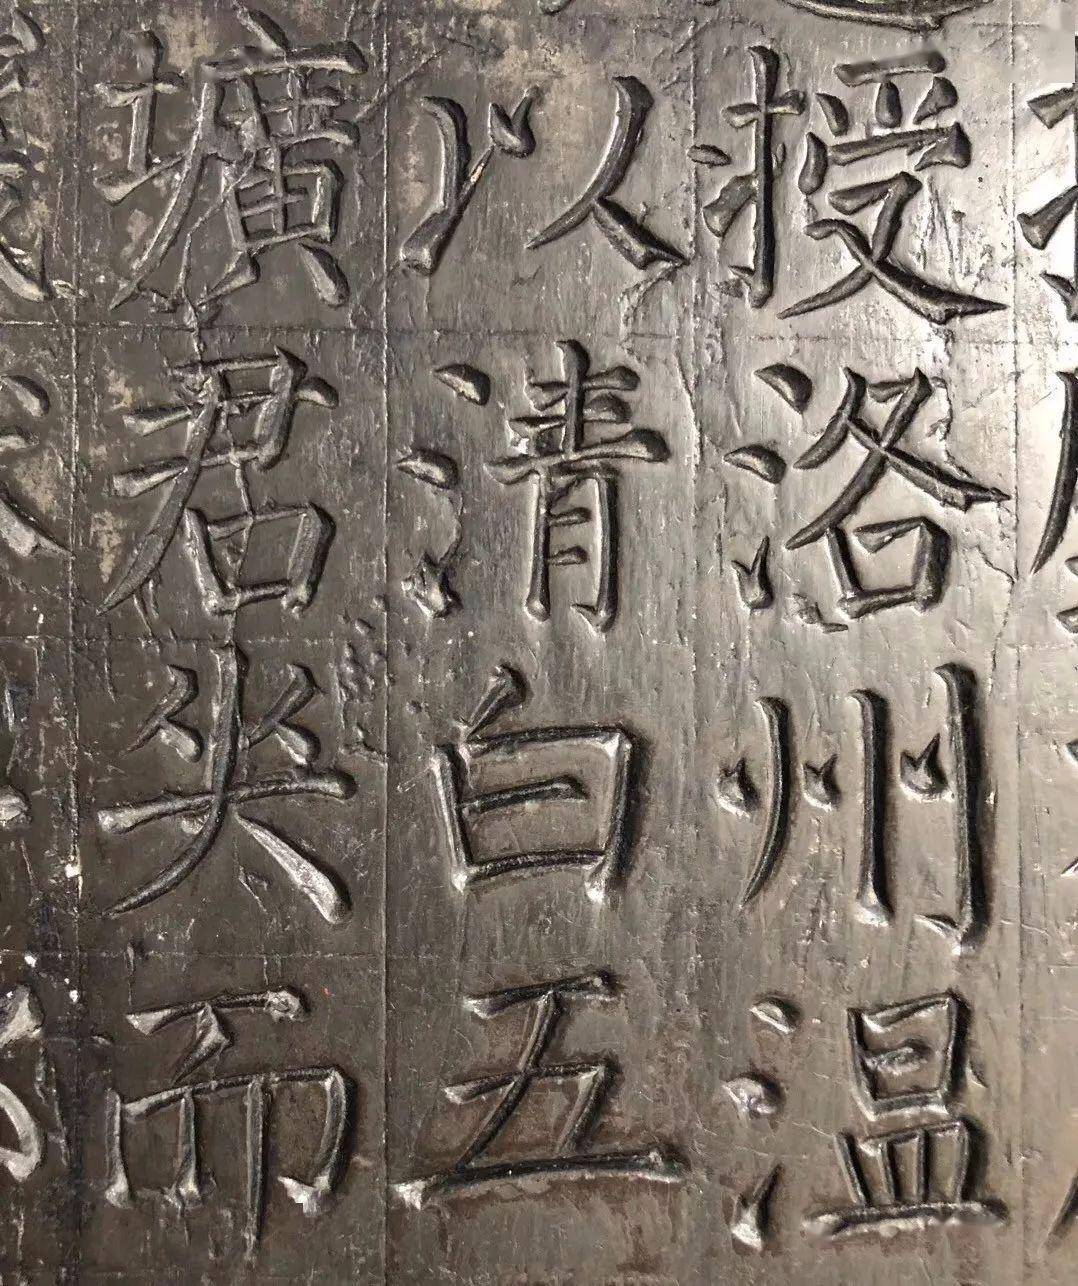 授洛州温
以清白五
壙君夾而